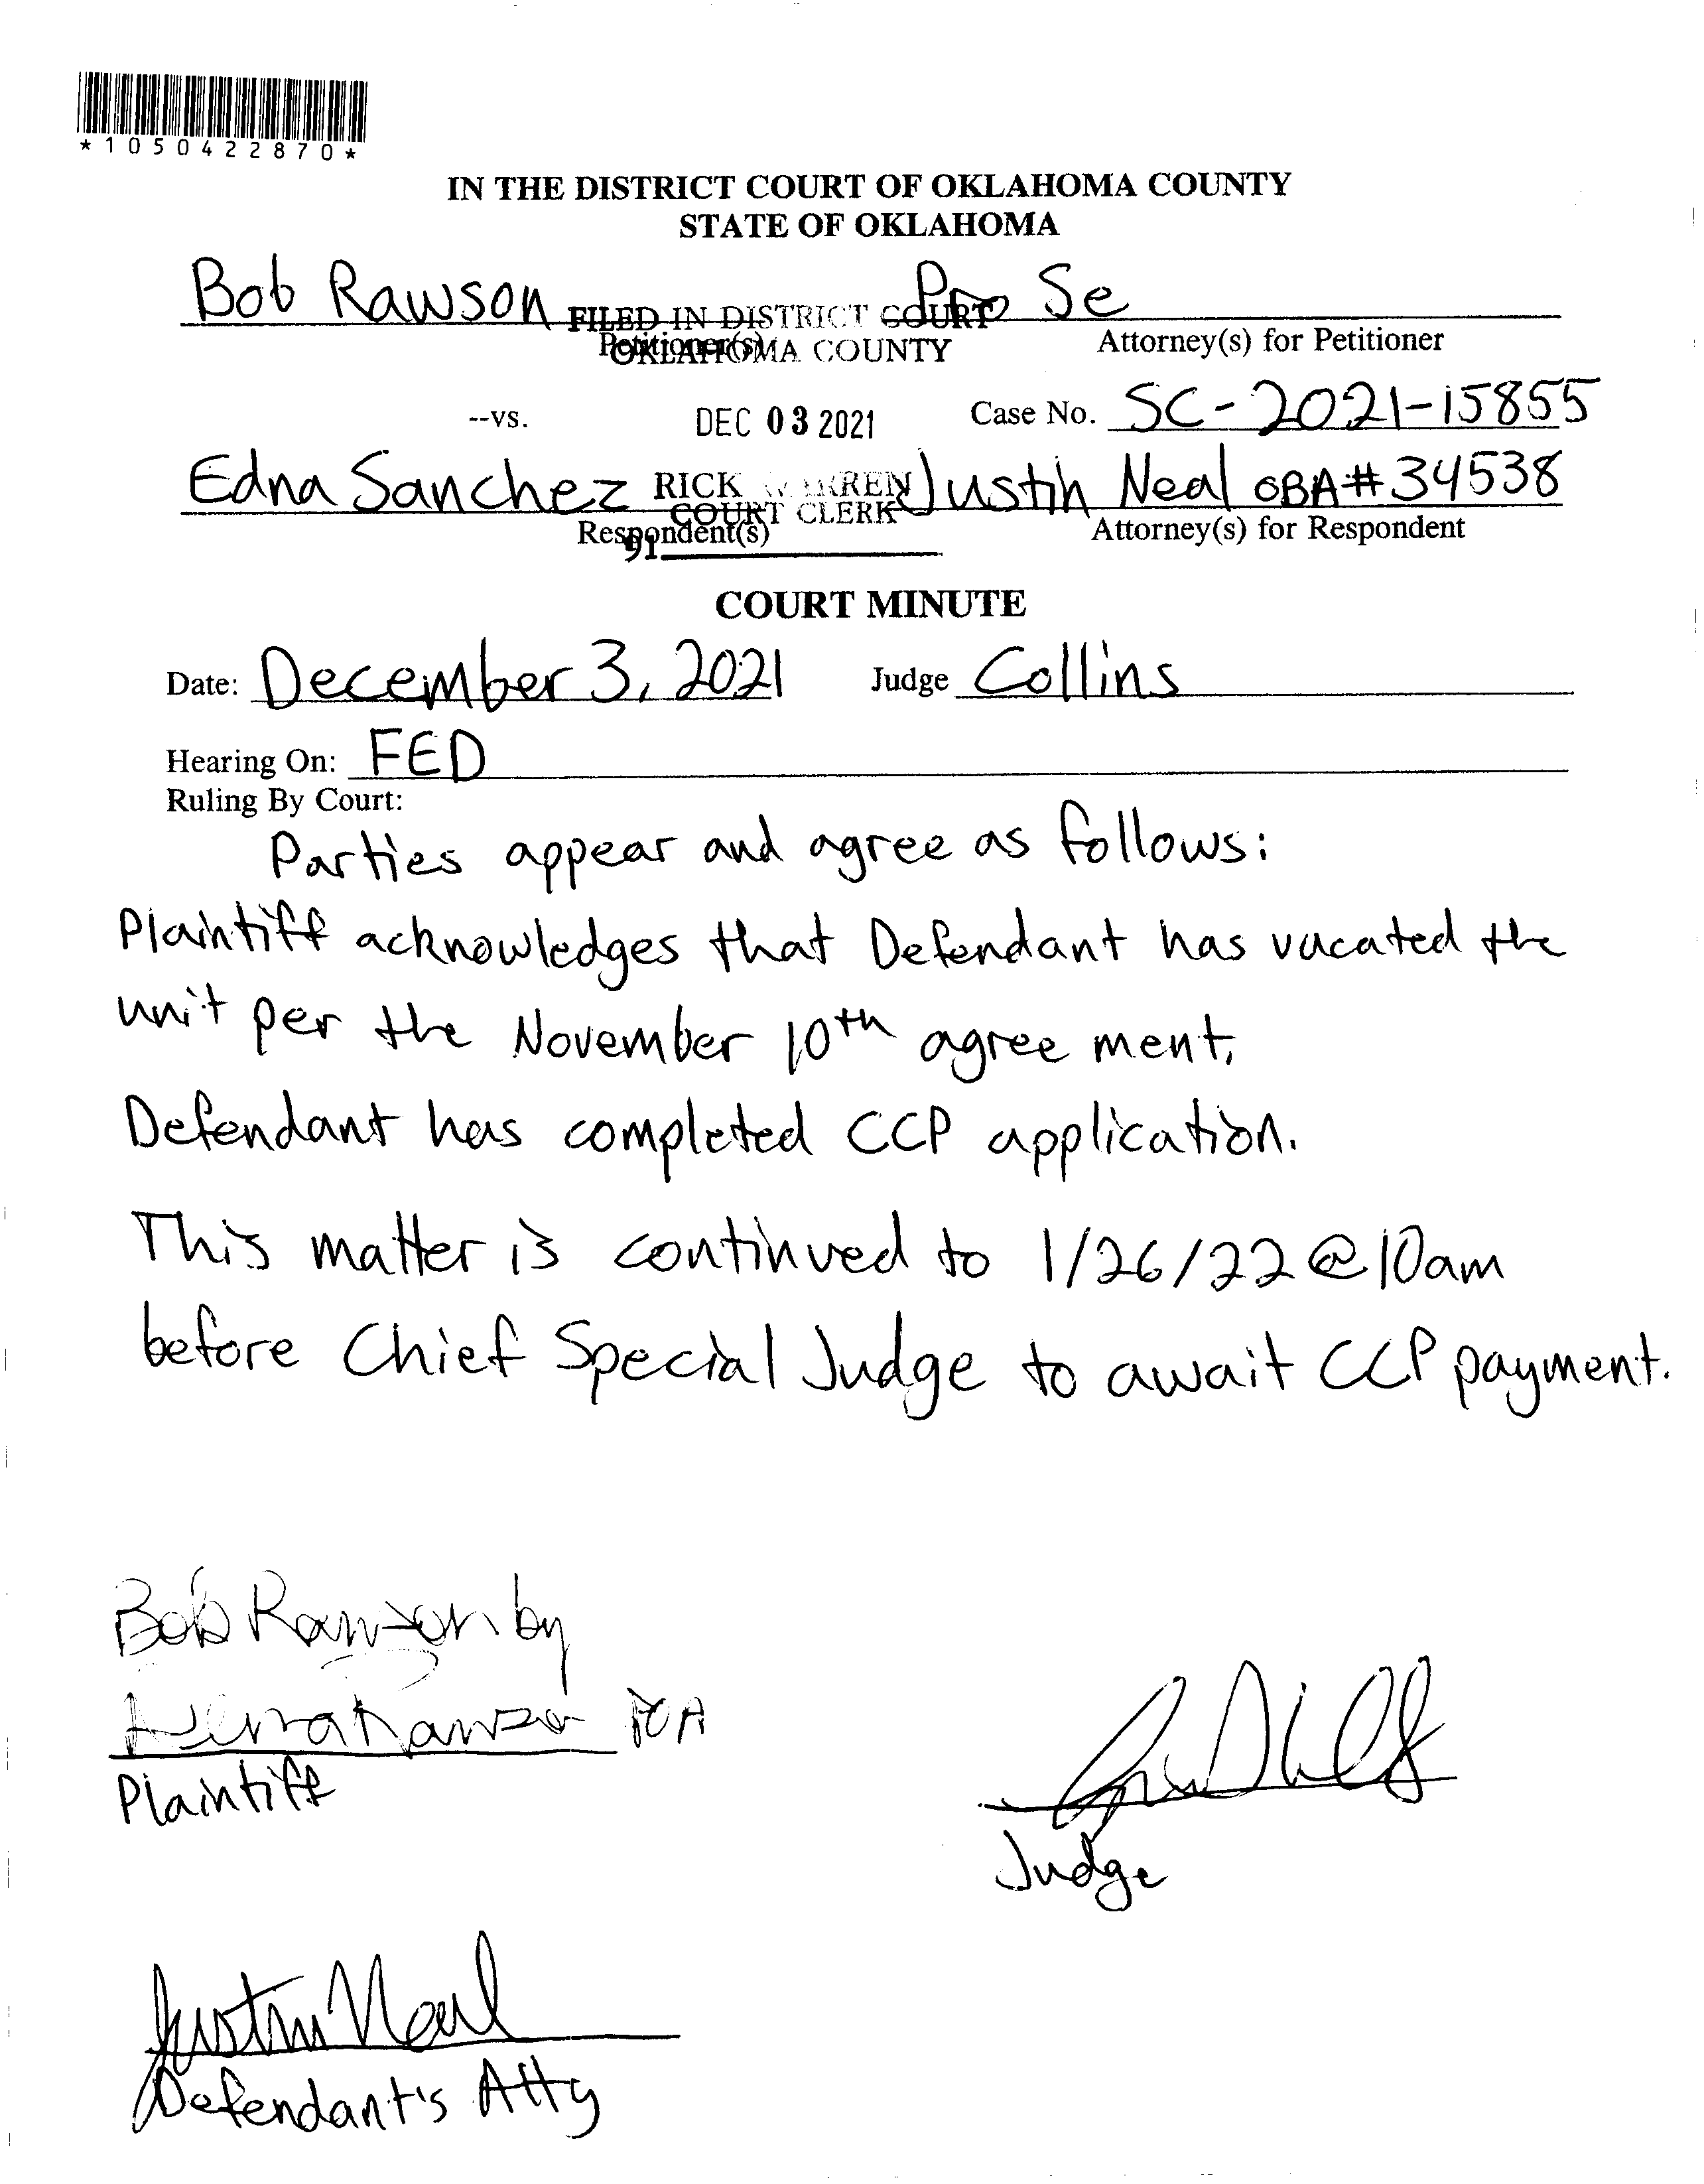 *1050422870*
IN THE DISTRICT COURT OF OKLAHOMA COUNTY
STATE OF OKLAHOMA
Bob Rawson Pro Se
FILED IN DISTRICT COURT
Petitioner(s) Attorney(s) for Petitioner
OKLAHOMA COUNTY
--vs. DEC 03 2021 Case No. SC-2021-15855
Edna Sanchez Justin Neal OBA# 34538
RICK WARREN
COURT CLERK
Respondent(s) Attorney(s) for Respondent
91
COURT MINUTE
Date: December 3, 2021 Judge Collins
Hearing On: FED
Ruling By Court:
Parties appear and agree as follows:
Plaintiff acknowledges that Defendant has vacated the
unit per the November 10th agreement.
Defendant has completed CCP application.
This matter is continued to 1/26/22 @ 10am
before Chief Special Judge to await CCP payment.
Bob Rawson by
Rawson POA
Plaintiff
Judge
Justin Neal
Defendant's Atty